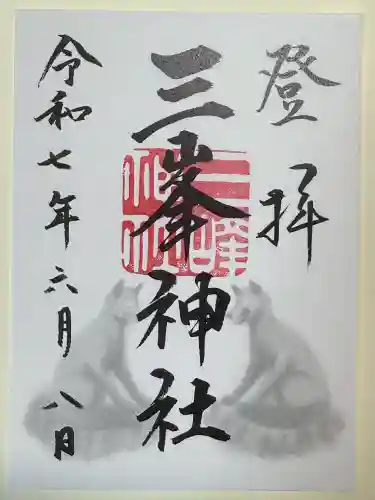 登拝
三峯神社
令和七年六月八日